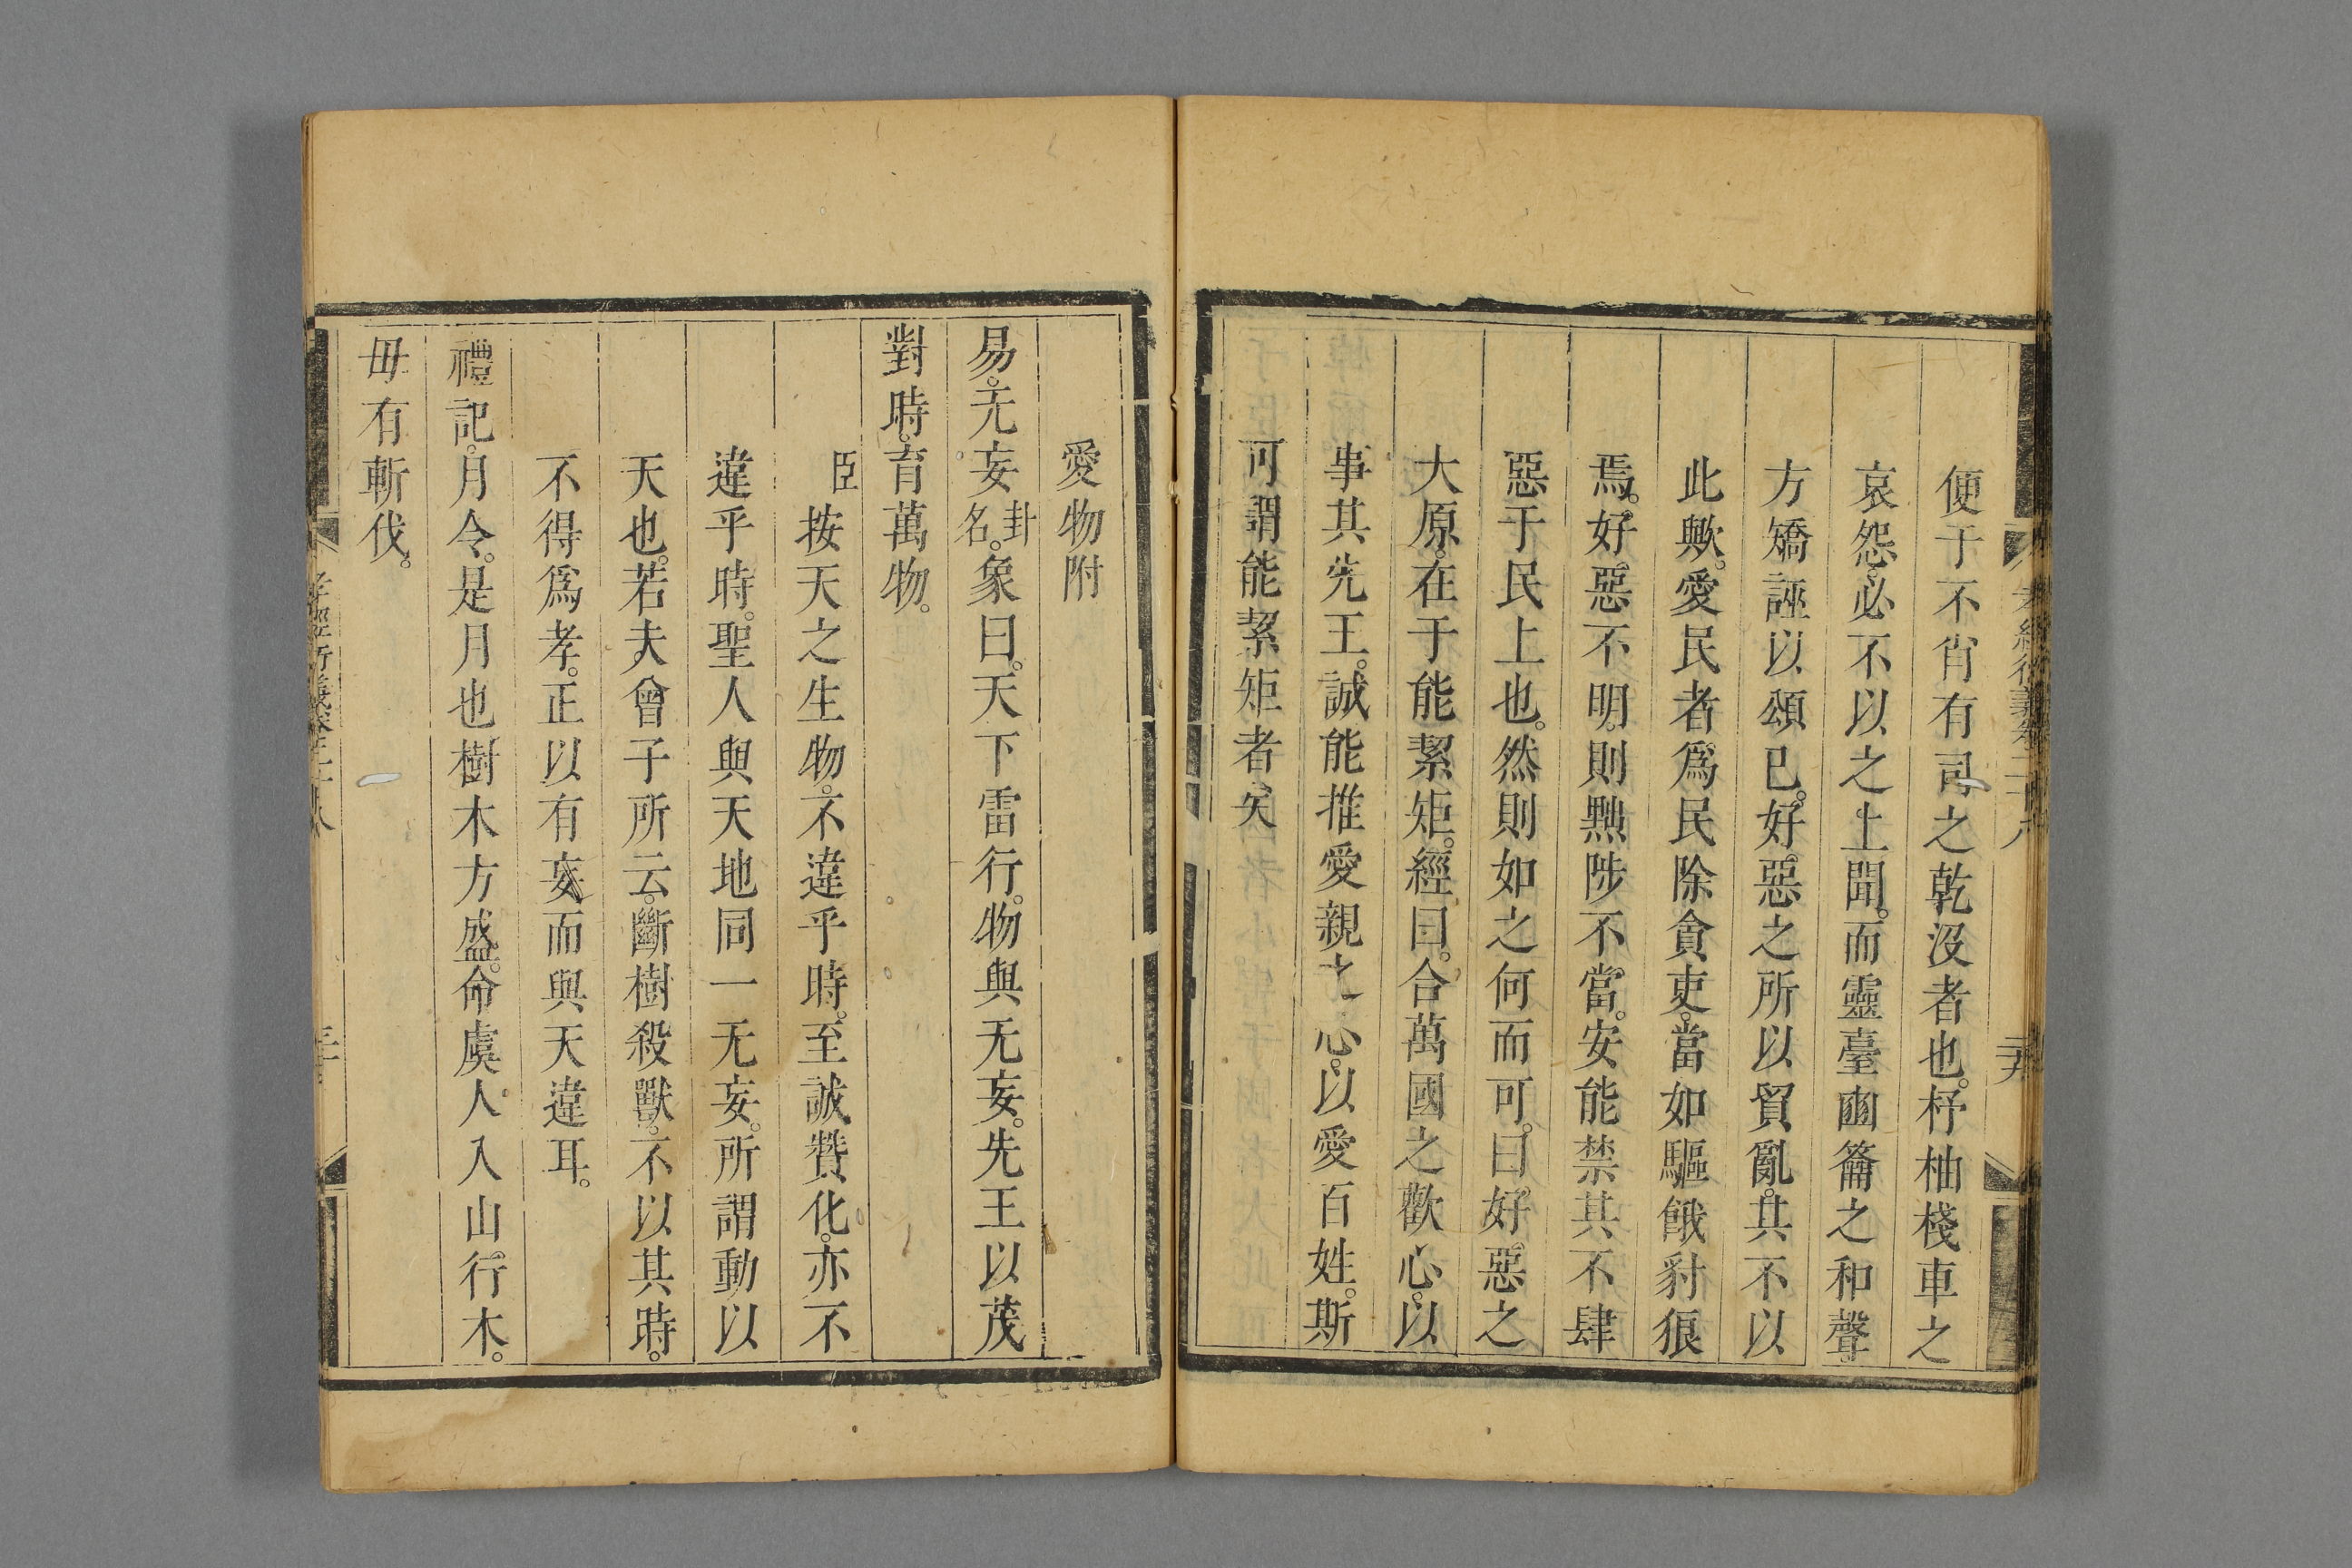 便于不肖有司之乾沒者也。杼柚棧車之
哀怨。必不以之上聞。而靈臺鹵籥之和聲。
方矯誣以頌已。好惡之所以貿亂。其不以
此歟。愛民者爲民除貪吏。當如驅餓豺狼
焉。好惡不明。則黜陟不當。安能禁其不肆
惡于民上也。然則如之何而可。曰。好惡之
大原。在于能絜矩。經曰。合萬國之歡心。以
事其先王。誠能推愛親之心。以愛百姓。斯
可謂能絜矩者矣
愛物附
易。无妄卦名。象曰。天下雷行。物與无妄。先王以茂
對時。育萬物。
臣按天之生物。不違乎時。至誠贊化。亦不
違乎時。聖人與天地同一无妄。所謂動以
天也。若夫曾子所云。斷樹殺獸。不以其時。
不得爲孝。正以有妄而與天違耳。
禮記。月令。是月也樹木方盛。命虞人入山行木。
毋有斬伐。
孝經衍義卷二十八